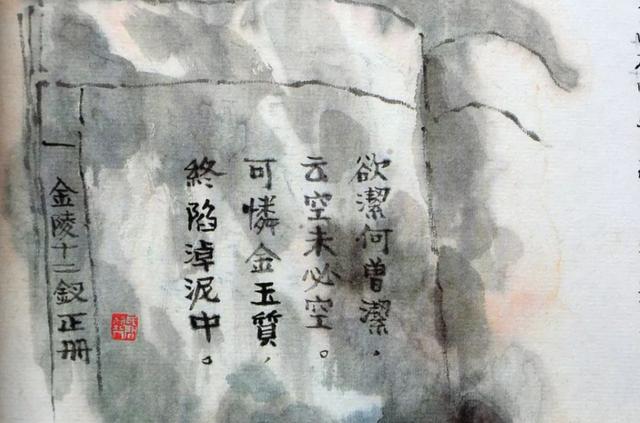 欲潔何曾潔，
云空未必空。
可憐金玉質，
終陷淖泥中。
金陵十二釵正册